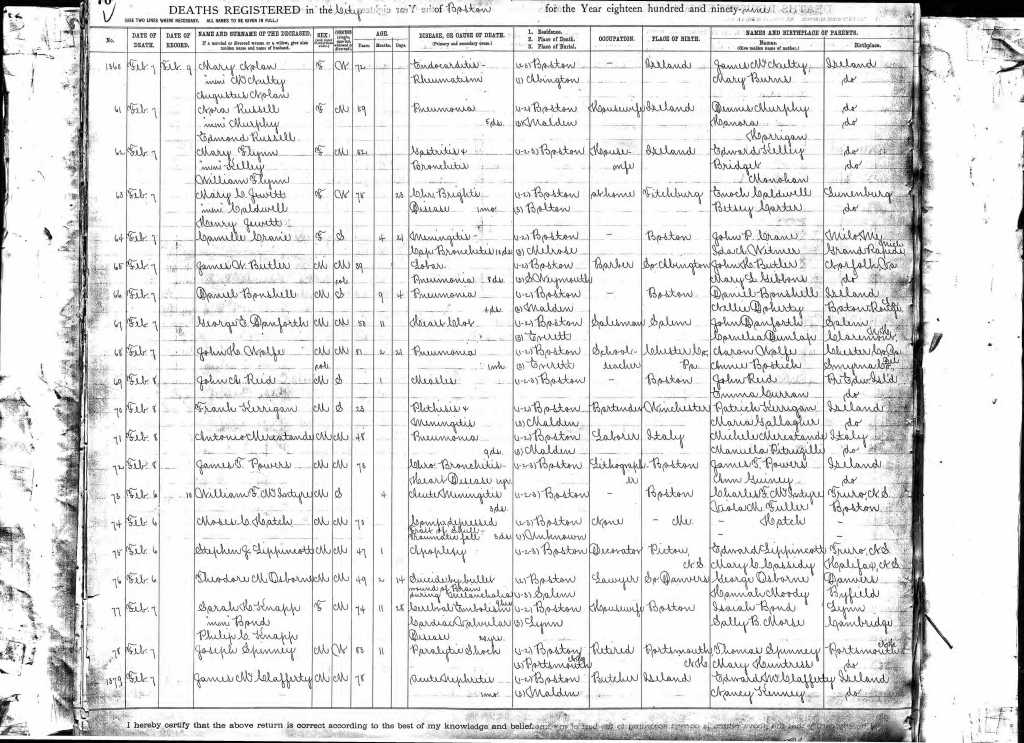 DEATHS REGISTERED in the City of Boston for the Year eighteen hundred and ninety-nine
(USE TWO LINES WHERE NECESSARY. ALL NAMES TO BE GIVEN IN FULL.)
No. DATE OF DEATH. DATE OF RECORD. NAME AND SURNAME OF THE DECEASED. SEX: AGE. DISEASE, OR CAUSE OF DEATH. 1. Residence. OCCUPATION. PLACE OF BIRTH. NAMES AND BIRTHPLACE OF PARENTS.
If a married or divorced woman or a widow, give also maiden name and name of husband. Years Months Days (Primary and secondary cause.) 2. Place of Death. Names. Birthplace.
3. Place of Burial. (Give maiden name of mother.)
1360 Feb 7 Feb 9 Mary Nolan F W 72 Endocarditis- Boston – Ireland James McNulty Ireland
McNulty Rheumatism Abington Mary Burns do
Augustus Nolan
61 Feb 7 Nora Russell F M Pneumonia Boston Housewife Ireland Dennis Murphy do
Murphy 5ds. Malden Hanora do
Edmond Russell Horrigan
62 Feb 7 Mary Flynn F M 52 Gastritis & Boston House- Ireland Edward Kelley do
Kelley Bronchitis wife Bridget do
William Flynn Monohan
63 Feb 7 Mary C. Jewett F W 78 Chr. Brights Boston at home Fitchburg Enoch Caldwell Lunenburg
Caldwell Disease 1mo. Bolton Betsey Carter do
Henry Jewett
64 Feb 7 Camille Crane F S 4 21 Meningitis- Boston – Boston John P. Crane Milo, Me
Cap. Bronchitis Melrose Witmer Grand Rapids Mich
65 Feb 7 James W. Butler M M 39 Lobar Boston Barber So. Abington John H. Butler Norfolk, Va
col. Pneumonia 8ds. S. Weymouth Mary L. Gibbons do
66 Feb 7 Daniel Bonshell M S 9 4 Pneumonia Boston – Boston Daniel Bonshell Ireland
4ds. Malden Nellie Doherty
67 Feb 7 George E. Danforth M M 50 11 Heart Clot Boston Salesman Salem John Danforth Salem
Everett Cornelia Dunlap Claremont, N.H.
68 Feb 7 John H. Wolfe M M 51 2 Pneumonia Boston School- Chester Co., Aaron Wolfe Chester Co. Pa
col. 1wk. Everett teacher Pa. Annie Bostich Smyrna Del
69 Feb 8 John A. Reid M S 1 Measles Boston – Boston John Reid Pr. Edw. Isl'd
Emma Curran do
70 Feb 8 Frank Kerrigan M S 23 Phthisis & Boston Bartender Winchester Patrick Kerrigan Ireland
Meningitis Malden Maria Gallagher do
71 Feb 8 Antonio Mercatande M M 48 Pneumonia Boston Laborer Italy Michele Mercatande Italy
9ds. Malden Manuella do
72 Feb 8 James T. Powers M M 73 Chro. Bronchitis- Boston Lithograph- Boston James T. Powers Ireland
Heart Disease er Ann Guiney do
73 Feb 6 10 William F. McIntyre M S 4 Acute Meningitis Boston – Boston Charles F. McIntyre Truro, N.S.
3ds. Viola M. Fuller Boston
74 Feb 6 Moses C. Hatch M M 73 Comp. depressed Boston None – Me. – Hatch –
Fract. of skull Unknown – –
Traumatic fall 3ds
75 Feb 6 Stephen J. Lippincott M M 47 1 Apoplexy Boston Decorator Pictou, Edward Lippincott Truro, N.S.
N.S. Mary C. Cassidy Halifax, N.S.
76 Feb 6 Theodore M. Osborne M M 49 2 14 Suicide by bullet Boston Lawyer So. Danvers George Osborne Danvers
wound of Brain Salem Hannah Moody Byfield
during Melancholia
77 Feb 7 Sarah H. Knapp F M 74 11 28 Cerebral Embolism Boston Housewife Boston Isaiah Bond Lynn
Bond Cardiac Valvular Lynn Sally B. Morse Cambridge
Philip C. Knapp Disease
78 Feb 7 Joseph Spinney M W 83 11 Paralytic Shock Boston Retired Portsmouth Thomas Spinney Portsmouth N.H.
Portsmouth N.H. N.H. Mary Huntress do
1379 Feb 7 James McClafferty M M 78 Acute Nephritis Boston Butcher Ireland Edward McClafferty Ireland
1mo. Malden Nancy Kenney do
I hereby certify that the above return is correct according to the best of my knowledge and belief.